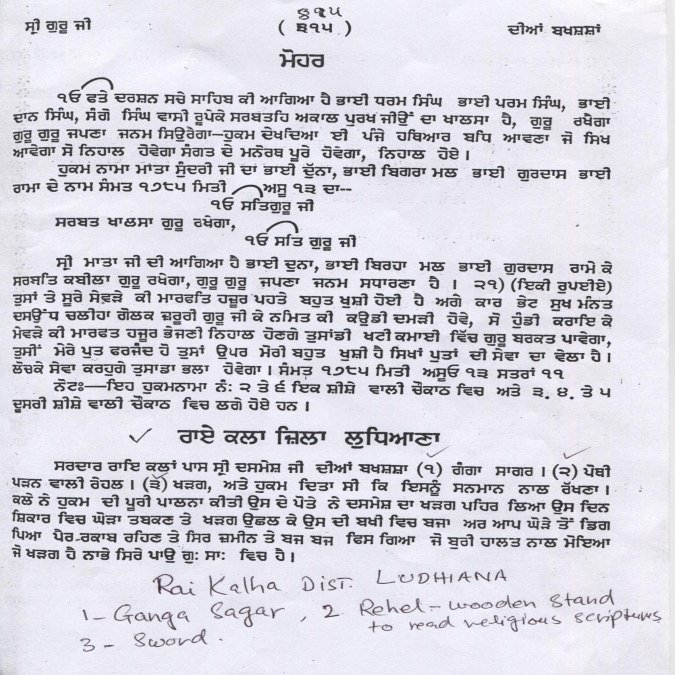 ੩੧੫
ਸ੍ਰੀ ਗੁਰੂ ਜੀ
( ੩੧੫ )
ਦੀਆਂ ਬਖਸ਼ਸ਼ਾਂ
ਮੋਹਰ
੧ਓ ਫਤੇ ਦਰਸ਼ਨ ਸਚੇ ਸਾਹਿਬ ਕੀ ਆਗਿਆ ਹੈ ਭਾਈ ਧਰਮ ਸਿੰਘ ਭਾਈ ਪਰਮ ਸਿੰਘ, ਭਾਈ
ਦਾਨ ਸਿੰਘ, ਸੰਗੋ ਸਿੰਘ ਵਾਸੀ ਰੂਪੇਕੇ ਸਰਬਤਹਿ ਅਕਾਲ ਪੁਰਖ ਜੀਉਂ ਦਾ ਖਾਲਸਾ ਹੈ, ਗੁਰੂ ਰਖੈਗਾ
ਗੁਰੂ ਗੁਰੂ ਜਪਣਾ ਜਨਮ ਸਿਉਰੈਗਾ—ਹੁਕਮ ਦੇਖਦਿਆ ਈ ਪੰਜੇ ਹਥਿਆਰ ਬਧਿ ਆਵਣਾ ਜੋ ਸਿਖ
ਆਵੇਗਾ ਸੋ ਨਿਹਾਲ ਹੋਵੇਗਾ ਸੰਗਤ ਦੇ ਮਨੋਰਥ ਪੂਰੇ ਹੋਵੇਗਾ, ਨਿਹਾਲ ਹੋਏ।
ਹੁਕਮ ਨਾਮਾ ਮਾਤਾ ਸੁੰਦਰੀ ਜੀ ਦਾ ਭਾਈ ਦੁੱਨਾ, ਭਾਈ ਬਿਗਰਾ ਮਲ ਭਾਈ ਗੁਰਦਾਸ ਭਾਈ
ਰਾਮਾ ਦੇ ਨਾਮ ਸੰਮਤ ੧੭੮੫ ਮਿਤੀ ਅਸੂ ੧੩ ਦਾ--
੧ਓ ਸਤਿਗੁਰੂ ਜੀ
ਸਰਬਤ ਖਾਲਸਾ ਗੁਰੂ ਰਖੇਗਾ,
੧ਓ ਸਤਿ ਗੁਰੂ ਜੀ
ਸ੍ਰੀ ਮਾਤਾ ਜੀ ਦੀ ਆਗਿਆ ਹੈ ਭਾਈ ਦੁਨਾ, ਭਾਈ ਬਿਰਹਾ ਮਲ ਭਾਈ ਗੁਰਦਾਸ ਰਾਮੇ ਕੇ
ਸਰਬਤਿ ਕਬੀਲਾ ਗੁਰੂ ਰਖੇਗਾ, ਗੁਰੂ ਗੁਰੂ ਜਪਣਾ ਜਨਮ ਸਧਾਰਣਾ ਹੈ। ੨੧) (ਇਕੀ ਰੁਪਈਏ)
ਤੁਸਾਂ ਤੇ ਸੂਰੇ ਸੇਵੜੇ ਕੀ ਮਾਰਫਤਿ ਹਜ਼ੂਰ ਪਹਤੇ ਬਹੁਤ ਖੁਸ਼ੀ ਹੋਈ ਹੈ ਅਗੇ ਕਾਰ ਭੇਟ ਸੁਖ ਮੰਨਤ
ਦਸਉਂਧ ਚਲੀਹਾ ਗੋਲਕ ਜ਼ਰੂਰੀ ਗੁਰੂ ਜੀ ਕੇ ਨਮਿਤ ਕੀ ਕਉਡੀ ਦਮੜੀ ਹੋਵੇ, ਸੋ ਹੁੰਡੀ ਕਰਾਇ ਕੇ
ਮੇਵੜੇ ਕੀ ਮਾਰਫਤ ਹਜ਼ੂਰ ਭੇਜਣੀ ਨਿਹਾਲ ਹੋਣਗੇ ਤੁਸਾਂਡੀ ਖਟੀ ਕਮਾਈ ਵਿੱਚ ਗੁਰੂ ਬਰਕਤ ਪਾਵੇਗਾ,
ਤੁਸੀਂ ਮੇਰੇ ਪੁਤ ਫਰਜੰਦ ਹੋ ਤੁਸਾਂ ਉਪਰ ਮੇਰੀ ਬਹੁਤ ਖੁਸ਼ੀ ਹੈ ਸਿਖਾਂ ਪੁਤਾਂ ਦੀ ਸੇਵਾ ਦਾ ਵੇਲਾ ਹੈ।
ਲੋਚਕੇ ਸੇਵਾ ਕਰਹੁਗੇ ਤੁਸਾਡਾ ਭਲਾ ਹੋਵੇਗਾ। ਸੰਮਤ ੧੭੮੫ ਮਿਤੀ ਅਸੂਓ ੧੩ ਸਤਰਾਂ ੧੧
ਨੋਟਃ—ਇਹ ਹੁਕਮਨਾਮਾ ਨੰਃ ੨ ਤੇ ੬ ਇਕ ਸ਼ੀਸ਼ੇ ਵਾਲੀ ਚੌਕਾਠ ਵਿਚ ਅਤੇ ੩. ੪. ਤੇ ੫
ਦੂਸਰੀ ਸ਼ੀਸ਼ੇ ਵਾਲੀ ਚੌਕਾਠ ਵਿਚ ਲਗੇ ਹੋਏ ਹਨ।
✓ ਰਾਏ ਕਲਾ ਜ਼ਿਲਾ ਲੁਧਿਆਣਾ
ਸਰਦਾਰ ਰਾਇ ਕਲ੍ਹਾਂ ਪਾਸ ਸ੍ਰੀ ਦਸਮੇਸ਼ ਜੀ ਦੀਆਂ ਬਖਸ਼ਸ਼ਾ (੧) ਗੰਗਾ ਸਾਗਰ। (੨) ਪੋਥੀ
ਪੜਨ ਵਾਲੀ ਰੇਹਲ। (੩) ਖੜਗ, ਅਤੇ ਹੁਕਮ ਦਿਤਾ ਸੀ ਕਿ ਇਸਨੂੰ ਸਨਮਾਨ ਨਾਲ ਰੱਖਣਾ।
ਕਲੇ ਨੇ ਹੁਕਮ ਦੀ ਪੂਰੀ ਪਾਲਨਾ ਕੀਤੀ ਉਸ ਦੇ ਪੋਤੇ ਨੇ ਦਸਮੇਸ਼ ਦਾ ਖੜਗ ਪਹਿਰ ਲਿਆ ਉਸ ਦਿਨ
ਸ਼ਿਕਾਰ ਵਿਚ ਘੋੜਾ ਤਬਕਣ ਤੇ ਖੜਗ ਉਛਲ ਕੇ ਉਸ ਦੀ ਬਖੀ ਵਿਚ ਬਜਾ ਅਰ ਆਪ ਘੋੜੇ ਤੋਂ ਡਿਗ
ਪਿਆ ਪੈਰ-ਰਕਾਬ ਰਹਿਣ ਤੇ ਸਿਰ ਜ਼ਮੀਨ ਤੇ ਬਜ ਬਜ ਫਿਸ ਗਿਆ ਜੋ ਬੁਰੀ ਹਾਲਤ ਨਾਲ ਮੋਇਆ
ਜੋ ਖੜਗ ਹੈ ਨਾਭੇ ਸਿਰੇ ਪਾਉ ਗੁਃ ਸਾਃ ਵਿਚ ਹੈ।
Rai Kalha DIST. LUDHIANA
1 - Ganga Sagar, 2 Rehel - wooden stand
to read religious scriptures
3 - Sword.